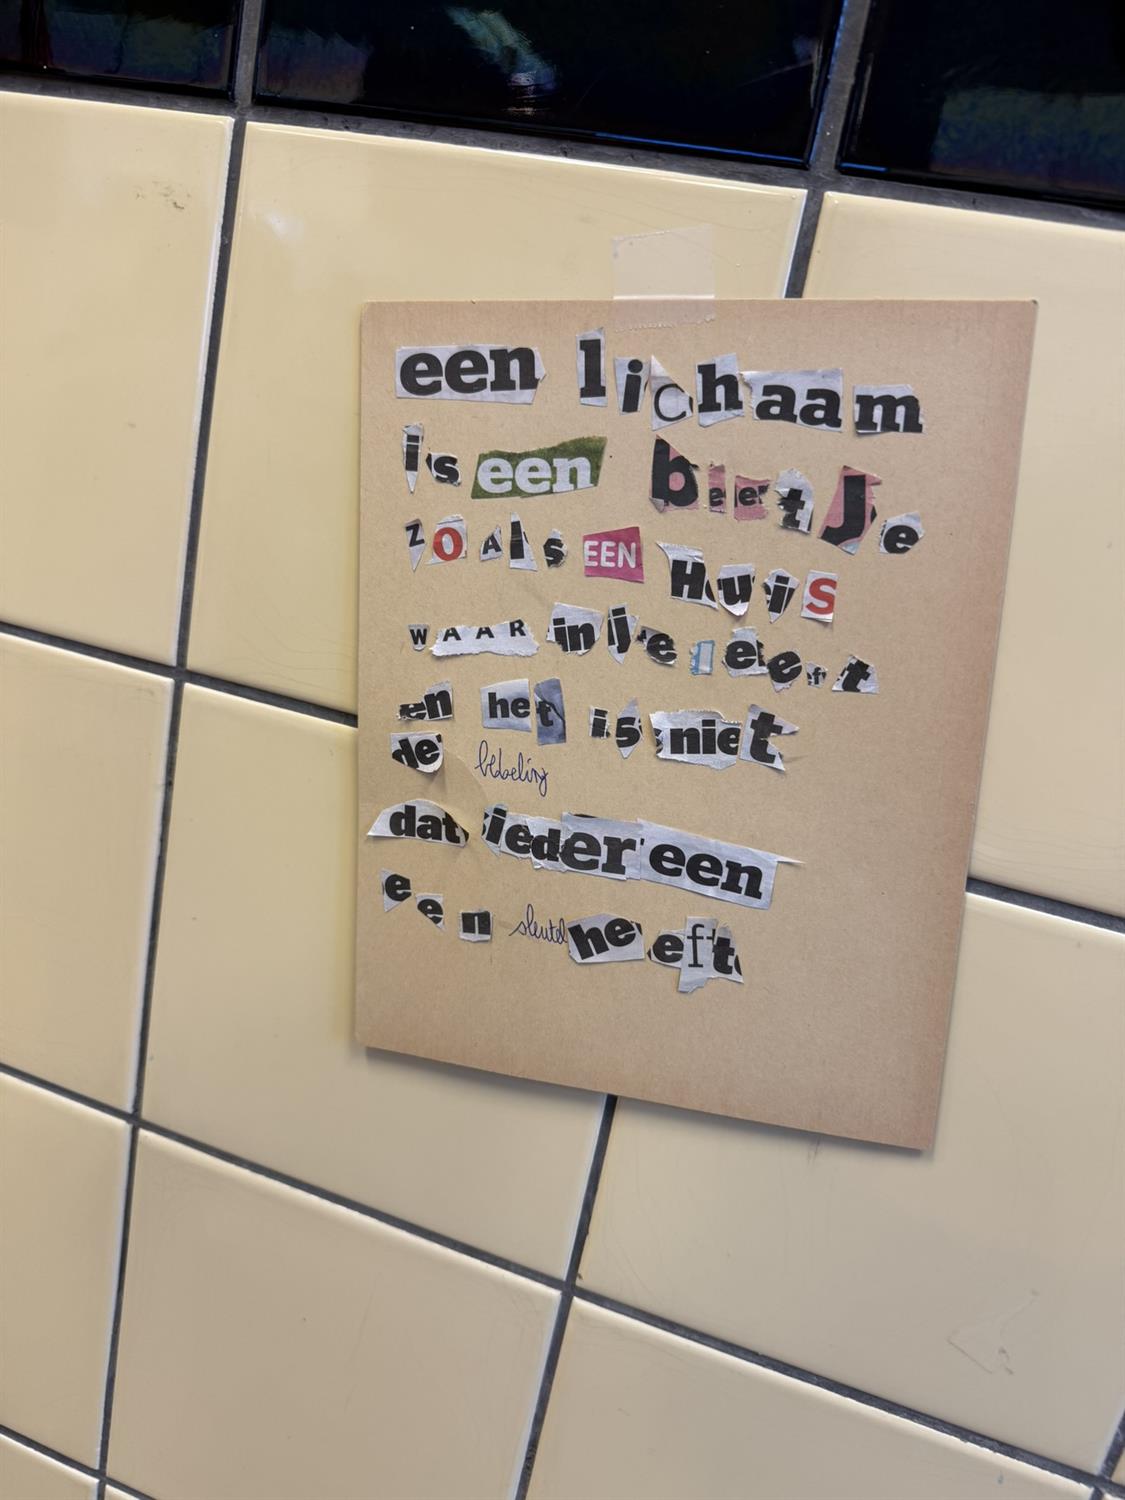 een lichaam
is een beetJe
zOAls EEN HuiS
WAAR in je leeft
en het is niet
de bedoeling
dat iedereen
een sleutel heeft